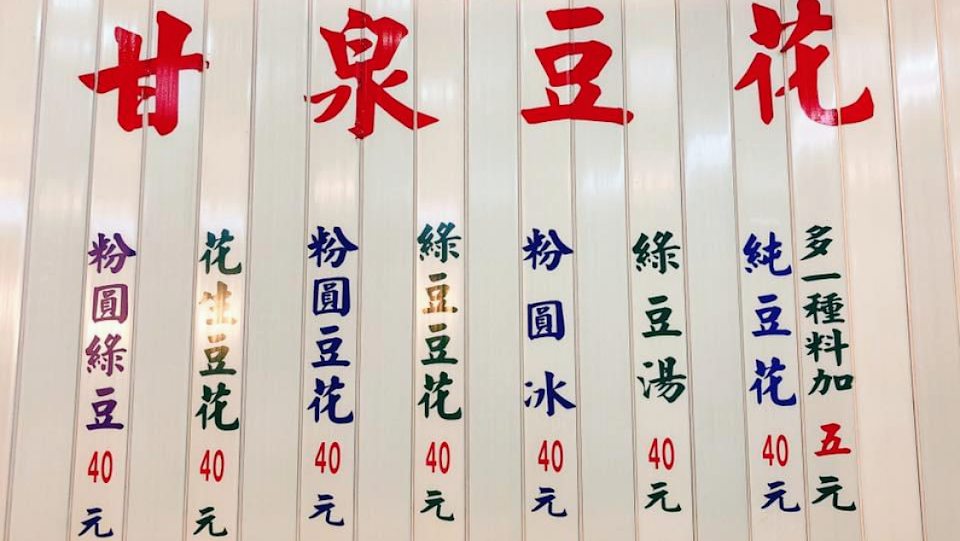 甘泉豆花
多一種料加五元
純豆花40元
綠豆湯40元
粉圓冰40元
綠豆豆花40元
粉圓豆花40元
花生豆花40元
粉圓綠豆40元